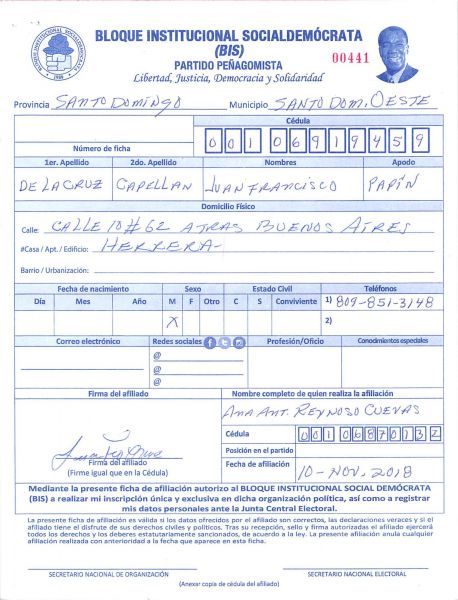 BLOQUE INSTITUCIONAL SOCIALDEMÓCRATA
(BIS)
00441
PARTIDO PEÑAGOMISTA
Libertad, Justicia, Democracia y Solidaridad
Provincia SANTO DOMINGO Municipio SANTO DOM. OESTE
Cédula
Número de ficha 0 0 1 0 6 9 1 9 4 5 9
1er. Apellido 2do. Apellido Nombres Apodo
DE LA CRUZ CAPELLAN JUAN FRANCISCO PAPIN
Domicilio Físico
Calle: CALLE 10 # 62 ATRAS BUENOS AIRES
#Casa / Apt. / Edificio: HERRERA
Barrio / Urbanización:
Fecha de nacimiento Sexo Estado Civil Teléfonos
Día Mes Año M F Otro C S Conviviente 1) 809-851-3148
X 2)
Correo electrónico Redes sociales Profesión/Oficio Conodmientos especiales
@
@
@
Firma del afiliado Nombre completo de quien realiza la afiliación
ANA ANT. REYNOSO CUEVAS
Cédula 0 0 1 0 6 8 7 0 1 3 2
Posición en el partido
Firma del afiliado
(Firme igual que en la Cédula)
Fecha de afiliación 10-NOV. 2018
Mediante la presente ficha de afiliación autorizo al BLOQUE INSTITUCIONAL SOCIAL DEMÓCRATA
(BIS) a realizar mi inscripción única y exclusiva en dicha organización política, así como a registrar
mis datos personales ante la Junta Central Electoral.
La presente ficha de afiliación es válida si los datos ofrecidos por el afiliado son correctos, las declaraciones veraces y si el
afiliado tiene el disfrute de sus derechos civiles y políticos. Tras su recepción, sello y firma autorizadas el afiliado ejercerá
todos los derechos y los deberes estatutariamente sancionados, de acuerdo a la ley. La presente afiliación anula cualquier
afiliación realizada con anterioridad a la fecha que aparece en esta ficha.
SECRETARIO NACIONAL DE ORGANIZACIÓN SECRETARIO NACIONAL ELECTORAL
(Anexar copia de cédula del afiliado)